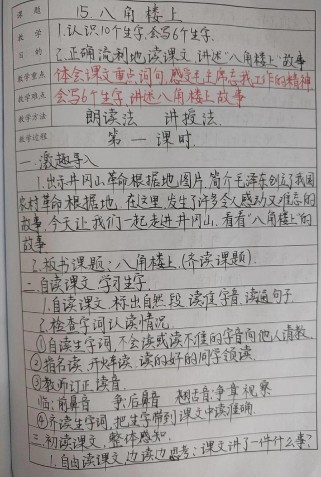 课题 15.八角楼上
教学目的 1.认识10个生字,会写6个生字.
2.正确流利地读课文,讲述“八角楼上”故事
教学重点 体会课文重点词句,感受毛主席忘我工作的精神
教学难点 会写6个生字,讲述八角楼上故事
教学方法 朗读法 讲授法.
教学过程 第一课时.
一.激趣导入
1.出示井冈山革命根据地图片.简介毛泽东创立了我国
农村革命根据地,在这里发生了许多令人感动又难忘的
故事,今天让我们一起走进井冈山,看看“八角楼上”的
故事
2.板书课题:八角楼上.(齐读课题).
二.自读课文 学习生字.
1.自读课文 标出自然段 读准字音.读通句子.
2.检查字词认读情况.
①自读生字词,不会读或读不准的字音向他人请教.
②指名读.开火车读.读的好的同学领读.
③教师订正读音.
临:前鼻音 争:后鼻音 翘舌音:争章视察
④齐读生字词,把生字带到课文中读准确.
三.初读课文.整体感知.
1.自由读课文 边读边思考:课文讲了一件什么事?